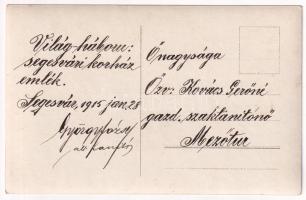 Világ-háboru:
segesvári korház
emlék.
Segesvár, 1915 jan. 28
György József
Őnagysága
Özv: Kovács Gerőné
gazd. szaktanitónő
Mezőtur